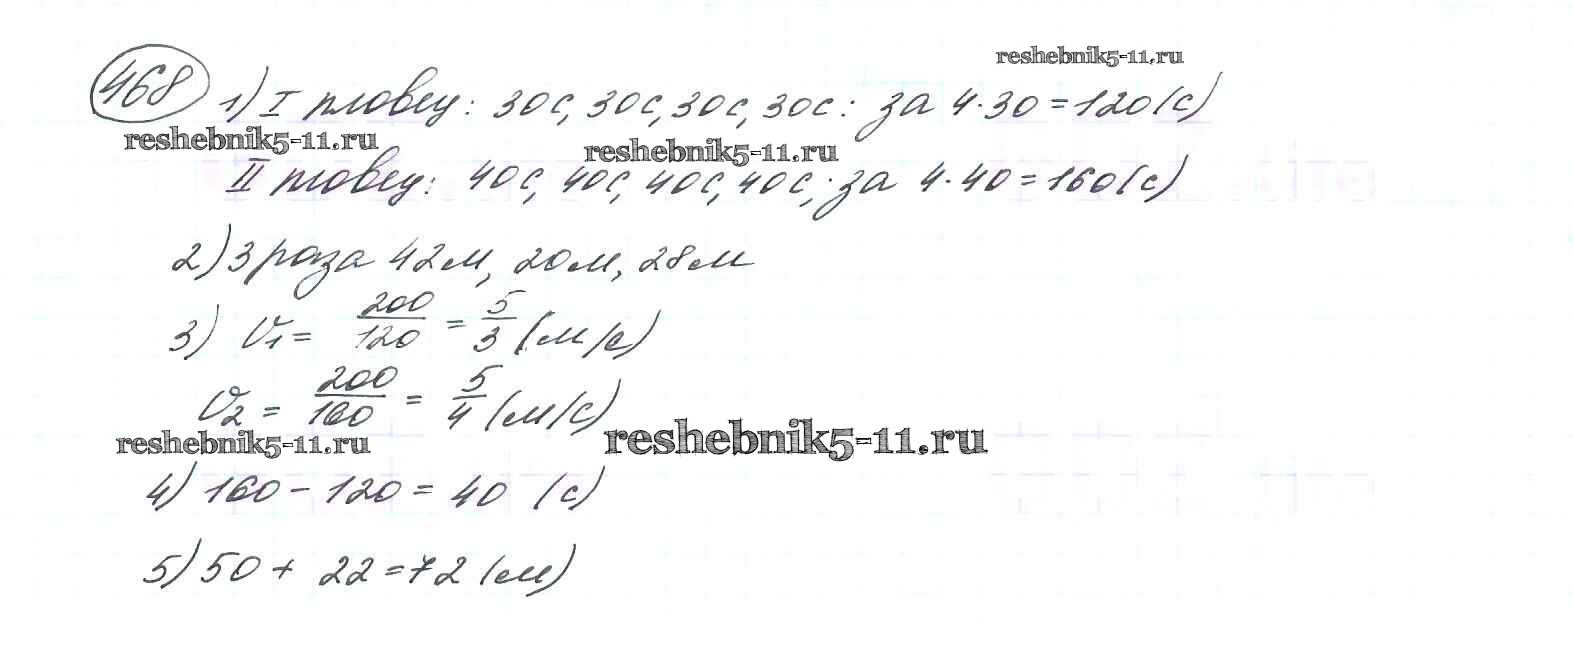 reshebnik5-11.ru
468 1) I пловец: 30с, 30с, 30с, 30с: за 4·30=120(с)
reshebnik5-11.ru
reshebnik5-11.ru
II пловец: 40с, 40с, 40с, 40с, за 4·40=160(с)
2) 3 раза 42м, 20м, 28м
3) V₁ = 200/120 = 5/3 (м/с)
V₂ = 200/160 = 5/4 (м/с)
reshebnik5-11.ru
reshebnik5-11.ru
4) 160 - 120 = 40 (с)
5) 50 + 22 = 72 (м)